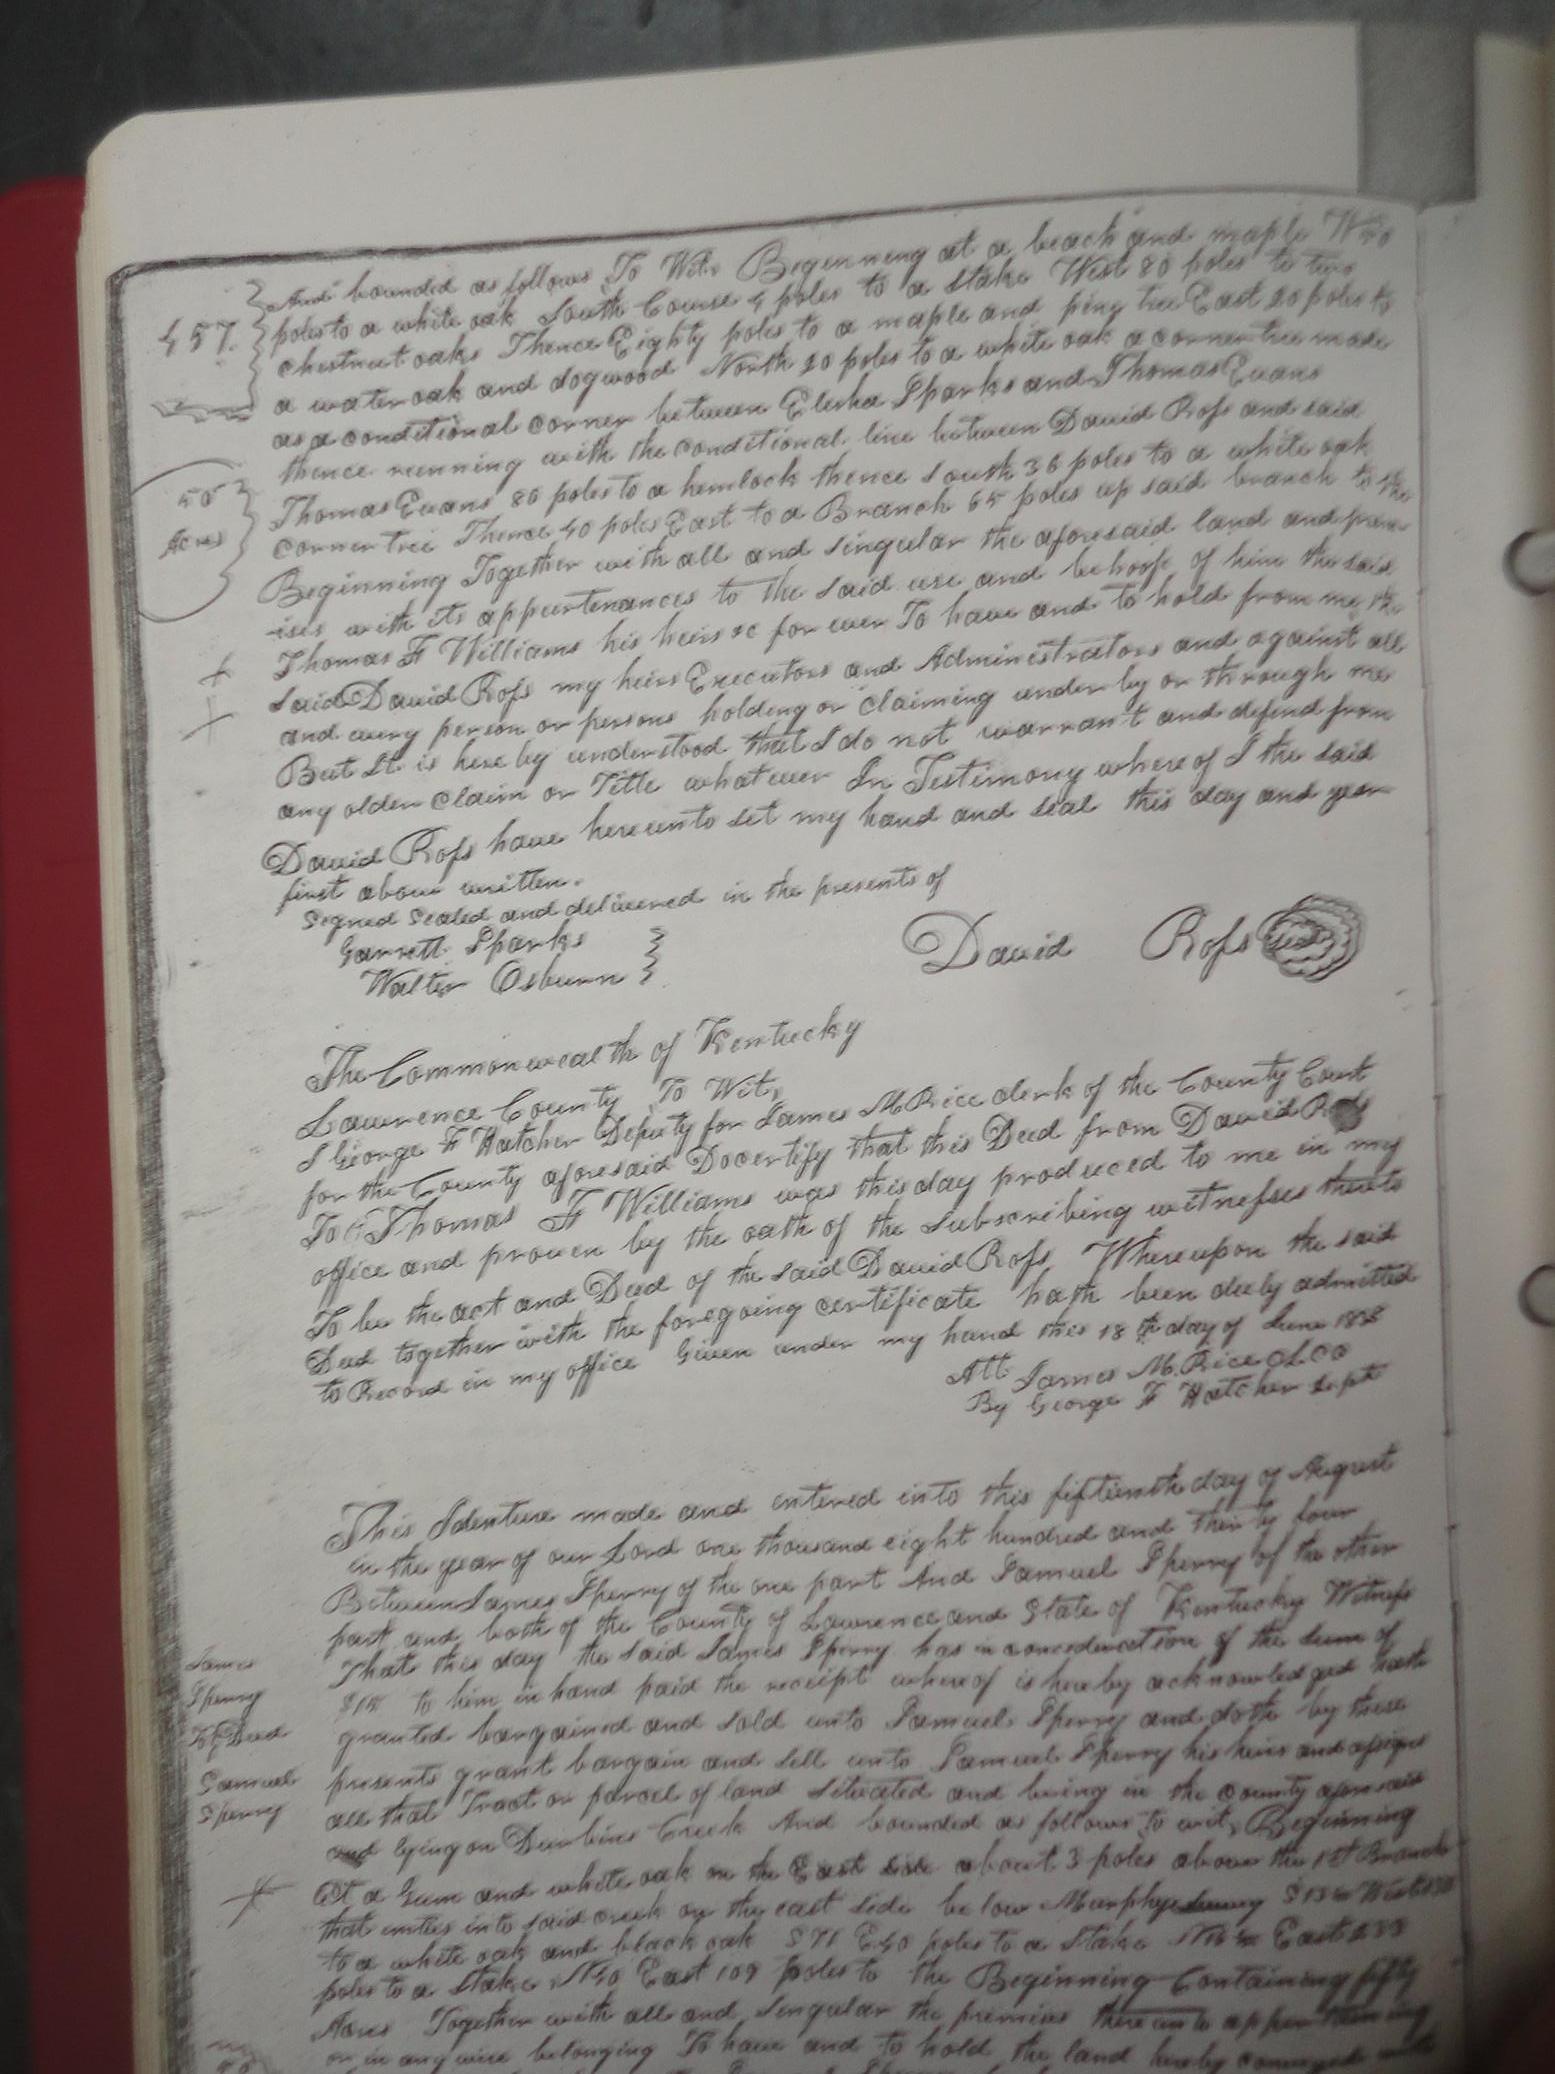 457.
And bounded as follows To Wit, Beginning at a beach and maple W 50
poles to a white oak South Course 4 poles to a stake West 80 poles to two
chestnut oaks Thence Eighty poles to a maple and piny tree East 20 poles to
a water oak and dogwood North 20 poles to a white oak a corner tree made
as a conditional corner between Elesha Sparks and Thomas Evans
thence running with the conditional line between David Ross and said
50
Acres
Thomas Evans 80 poles to a hemlock thence South 36 poles to a white oak
corner tree Thence 40 poles East to a Branch 65 poles up said branch to the
Beginning Together with all and singular the aforesaid land and prem
-ises with its appurtenances to the said use and behoof of him the said
Thomas F Williams his heirs &c for ever To have and to hold from me the
said David Ross my heirs Executors and Administrators and against all
and every person or persons holding or claiming under by or through me
But It is hereby understood that I do not warrant and defend from
any older claim or Title whatever In Testimony where of I the said
David Ross have hereunto set my hand and seal this day and year
first above written.
Segned Sealed and delivered in the presents of
Garrett Sparks
Walter Osburn
David Ross Seal
The Commonwealth of Kentucky
Lawrence County To Wit,
I George F Hatcher Deputy for James M Rice clerk of the County Court
for the County aforesaid Do certify that this Deed from David Ross
To Thomas F Williams was this day produced to me in my
office and proven by the oath of the Subscribing witnesses thereto
To be the act and Deed of the said David Ross Whereupon the said
Deed together with the foregoing certificate hath been duly admitted
to Record in my office Given under my hand this 18th day of June 1838
Att James M. Rice CLCC
By George F Hatcher Dept
This Identure made and entered into this fifteenth day of August
in the year of our Lord one thousand eight hundred and thirty four
Between James Sperry of the one part And Samuel Sperry of the other
part and both of the County of Lawrence and State of Kentucky Witness
James
Sperry
To Deed
Samuel
Sperry
That this day the said James Sperry has in concideration of the sum of
to him in hand paid the receipt where of is hereby acknowledged hath
granted bargained and sold unto Samuel Sperry and doth by these
presents grant bargain and sell unto Samuel Sperry his heirs and assigns
all that Tract or parcel of land Situated and being in the county aforesaid
and lying on Durbins Creek And bounded as follows to wit, Beginning
At a Gum and white oak on the East side about 3 poles above the 1st Branch
that enties into said creek on the east side below Murphys
to a white oak and black oak S 71 E 40 poles to a stake East 233
poles to a stake N 40 East 109 poles to the Beginning Containing fifty
Acres Together with all and singular the premises thereunto appertaining
or in any wise belonging To have and to hold the land hereby conveyed